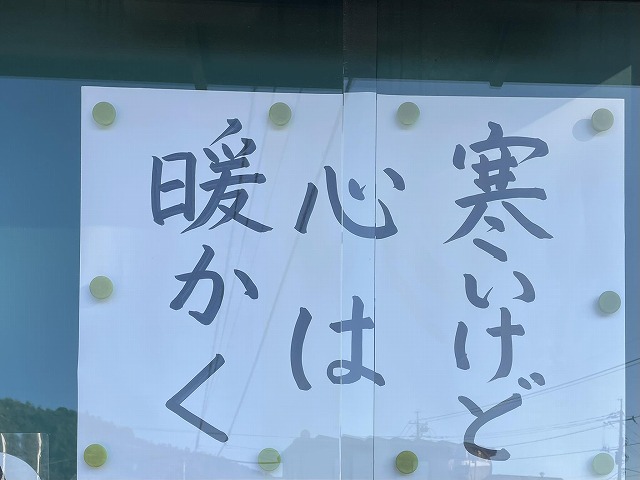 寒いけど
心は
暖かく